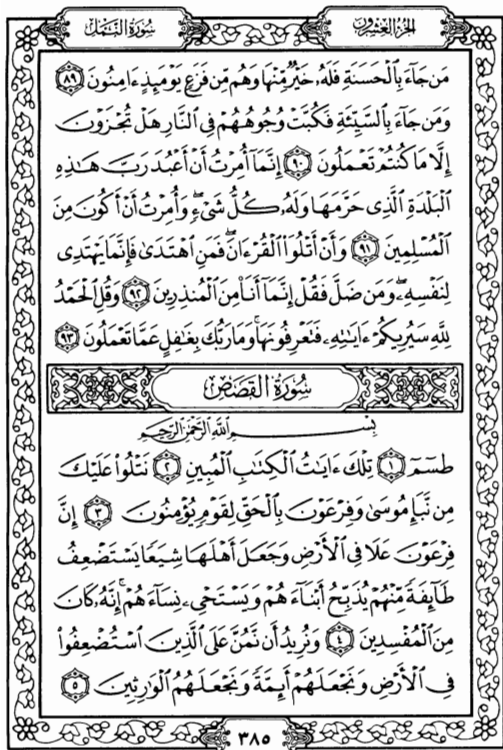 الجزء العشرون
سورة النمل
مَن جَآءَ بِٱلْحَسَنَةِ فَلَهُۥ خَيْرٌ مِّنْهَا وَهُم مِّن فَزَعٍ يَوْمَئِذٍ ءَامِنُونَ ٨٩
وَمَن جَآءَ بِٱلسَّيِّئَةِ فَكُبَّتْ وُجُوهُهُمْ فِى ٱلنَّارِ هَلْ تُجْزَوْنَ
إِلَّا مَا كُنتُمْ تَعْمَلُونَ ٩٠ إِنَّمَآ أُمِرْتُ أَنْ أَعْبُدَ رَبَّ هَٰذِهِ
ٱلْبَلْدَةِ ٱلَّذِى حَرَّمَهَا وَلَهُۥ كُلُّ شَىْءٍ ۖ وَأُمِرْتُ أَنْ أَكُونَ مِنَ
ٱلْمُسْلِمِينَ ٩١ وَأَنْ أَتْلُوَا۟ ٱلْقُرْءَانَ ۖ فَمَنِ ٱهْتَدَىٰ فَإِنَّمَا يَهْتَدِى
لِنَفْسِهِۦ ۖ وَمَن ضَلَّ فَقُلْ إِنَّمَآ أَنَا۠ مِنَ ٱلْمُنذِرِينَ ٩٢ وَقُلِ ٱلْحَمْدُ
لِلَّهِ سَيُرِيكُمْ ءَايَٰتِهِۦ فَتَعْرِفُونَهَا ۚ وَمَا رَبُّكَ بِغَٰفِلٍ عَمَّا تَعْمَلُونَ ٩٣
سُورَةُ القَصَصِ
بِسْمِ ٱللَّهِ ٱلرَّحْمَٰنِ ٱلرَّحِيمِ
طسٓمٓ ١ تِلْكَ ءَايَٰتُ ٱلْكِتَٰبِ ٱلْمُبِينِ ٢ نَتْلُوا۟ عَلَيْكَ
مِن نَّبَإِ مُوسَىٰ وَفِرْعَوْنَ بِٱلْحَقِّ لِقَوْمٍ يُؤْمِنُونَ ٣ إِنَّ
فِرْعَوْنَ عَلَا فِى ٱلْأَرْضِ وَجَعَلَ أَهْلَهَا شِيَعًا يَسْتَضْعِفُ
طَآئِفَةً مِّنْهُمْ يُذَبِّحُ أَبْنَآءَهُمْ وَيَسْتَحْىِۦ نِسَآءَهُمْ ۚ إِنَّهُۥ كَانَ
مِنَ ٱلْمُفْسِدِينَ ٤ وَنُرِيدُ أَن نَّمُنَّ عَلَى ٱلَّذِينَ ٱسْتُضْعِفُوا۟
فِى ٱلْأَرْضِ وَنَجْعَلَهُمْ أَئِمَّةً وَنَجْعَلَهُمُ ٱلْوَٰرِثِينَ ٥
٣٨٥